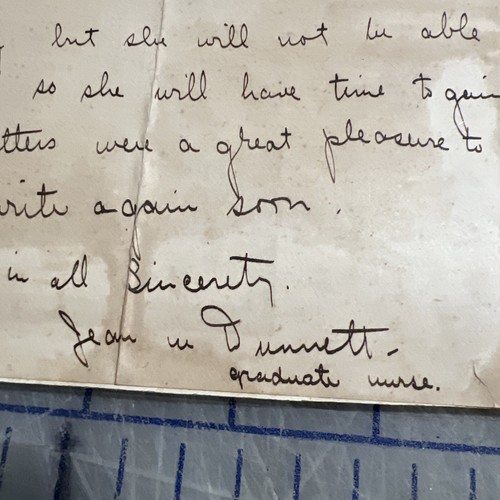 but she will not be able
so she will have time to gain
tters were a great pleasure to
write again soon.
in all Sincerety.
Jean W Dunnett-
graduate nurse.